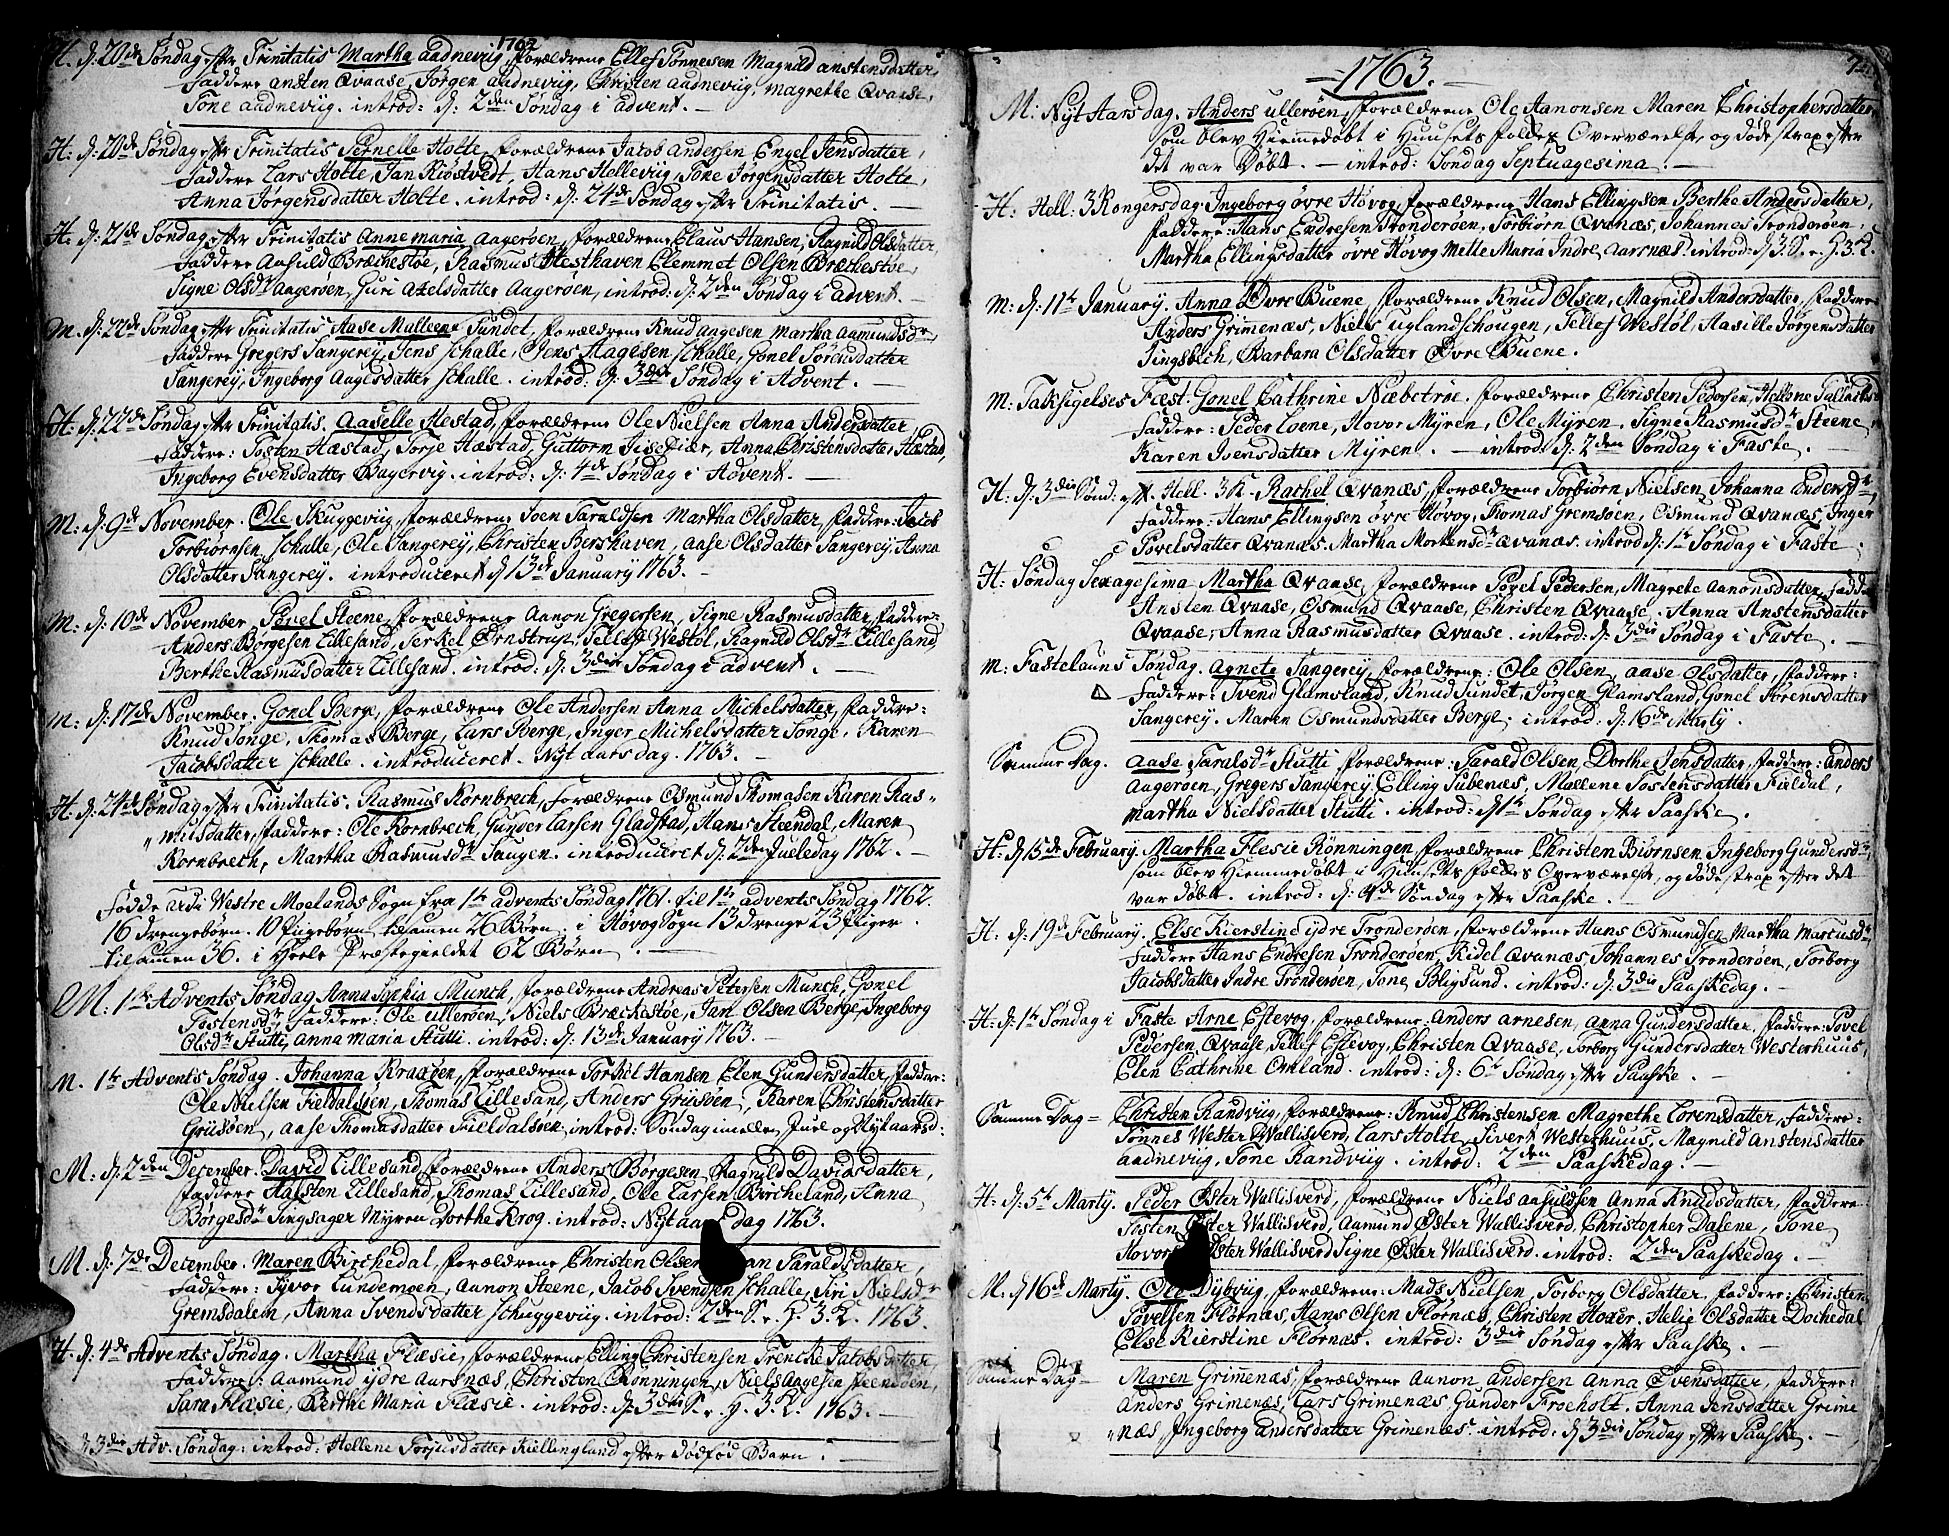 1762
H. d. 20de Søndag efter Trinitatis Martha Aadneviig, forældrene Ellef Tønnesen Magnild Anstensdatter,
Faddere Ansten Qvaase, Jørgen Aadneviig, Christen Aadneviig, Magrethe Qvaase,
Tone Aadneviig. introd: d: 2den Søndag i Advent. —
H: d: 20de Søndag efter Trinitatis Pernelle Holte, forældrene Jacob Andersen Engel Jensdatter,
Faddere Lars Holte, Jan Kiøstvedt, Hans Helleviig, Tone Jørgensdatter Holte,
Anna Jørgensdatter Holte. introd: d: 24de Søndag efter Trinitatis. —
H. d: 21de Søndag efter Trinitatis Annemaria Aagerøen, forældrene Claus Hansen, Ragnild Olsdatter
Faddere Aasuld Brækestøe, Rasmus Hesthaven Clemmet Olsen Brækestøe,
Signe Olsdr Aagerøen, Guri Axelsdatter Aagerøen, introd: d: 2den Søndag i Advent. —
M. d: 22de Søndag efter Trinitatis Aase Malleene Sundet, forældrene Knud Aagesen Martha Aamundsdr,
Faddere Gregers Sangerej, Jens Schalle, Jens Aagesen Schalle, Gonel Sørensdatter
Sangerej, Ingeborg Aagesdatter Schalle. introd: d: 3die Søndag i Advent. —
H. d: 22de Søndag efter Trinitatis. Aaselle Hestad, forældrene Ole Nielsen Anna Andersdatter,
Faddere: Tosten Hæstad, Torje Hæstad, Guttorm Tisefiær, Anna Christensdatter Hæstad,
Ingeborg Evensdatter Bagervig. introd: d: 4de Søndag i Advent. —
M: d: 9de November. Ole Skuggeviig, forældrene Joen Taraldsen Martha Olsdatter, Faddere: Jacob
Torbiørnsen Schalle, Ole Sangerej, Christen Bershaven, Aase Olsdatter Sangerej, Anna
Olsdatter Sangerej. introduceret d 13de January 1763. —
M: d: 10de November. Povel Steene, forældrene Aanon Gregersen, Signe Rasmusdatter, Faddere:
Anders Børgesen Lillesand, Terkel Ørnstrup, Tellef Westøl, Ragnild Olsdr Lillesand,
Berthe Rasmusdatter Lillesand. introd: d: 3die Søndag i Advent. —
M: d: 17de November. Gonel Berge, forældrene Ole Andersen Anna Michelsdatter, Faddre:
Knud Songe, Thomas Berge, Lars Berge, Inger Michelsdatter Songe, Karen
Jacobsdatter Schalle. introduceret. Nyt Aarsdag. 1763. —
H: d: 24de Søndag efter Trinitatis. Rasmus Kornbrech, Forældrene Osmund Thomasen Karen Ras=
musdatter, Faddere: Ole Kornbrech, Gunder Larsen Gladstad, Hans Steendal, Maren
Kornbrech, Martha Rasmusdr Saugen. introduceret d: 2den Jueledag 1762. —
Fødde ardi Westre Moelands Sogn fra 1te Advents Søndag 1761. til 1te Advents Søndag 1762.
16 Drengebørn. 10 Pigebørn tilsamen 26 Børn. i Høvog Sogn 13 Drenge 23 Piger.
tilsamen 36. i Heele Præstegieldet 62 Børn. —
M: 1te Advents Søndag Anna Sophia Munch, forældrene Andreas Petersen Munch, Gonel
Tostensdr, Faddere: Ole Ullerøen, Niels Brækestøe, Jan Olsen Berge, Ingeborg
Olsdr Stutti, Anna Maria Stutti. introd: d: 13de January 1763. —
M. 1te Advents Søndag. Johanna Kraagen, forældrene Torkel Hansen Elen Gundersdatter, Faddere:
Ole Nielsen Fieldalsøen, Thomas Lillesand, Anders Griisøen, Karen Christensdatter
Griisøen, Aase Thomasdatter Fieldalsøen, introd: Søndag imellem Juel og Nytaarsd:
M: d: 2den December. David Lillesand, forældrene Anders Børgesen, Ragnild Davidsdatter,
Faddere Halsten Lillesand, Thomas Lillesand, Ole Larsen Bircheland, Anna
Børgesdr Singsager Myren Dorthe Krog. introd: Nyt aars dag 1763.
M: d: 7de December. Maren Birchedal, forældrene Christen Olsen Taraldsdatter,
Faddere: Syvor Lundemoen, Aanon Steene, Jacob Svendsen Schalle, Siri Nielsdr
Gremsdalen, Anna Svendsdatter Schuggeviig. introd: 2den S. e. H. 3. K. 1763.
H. d: 4de Advents Søndag. Martha Flæsie, forældrene Elling Christensen Trencke Jacobsdatter,
Faddere: Aamund ydre Aarsnæs, Christen Rønningen, Niels Aagesen Steendøen,
Sara Flæsie, Berthe Maria Flæsie. introd: d: 3die S. e. H. 3. K. 1763. —
d 3die Adv. Søndag: introd: Hellene Torjusdatter Kiellingland efter Dødfød Barn. —
1763.
M: Nyt Aarsdag. Anders Ullerøen, forældrene Ole Aanonsen Maren Christophersdatter
som blev Hiemmedøbt i Huusets Folkes Overværelse, og døde strax efter
det var Døbt. — introd: Søndag Septuagesima. —
H: Hell: 3 Kongersdag. Ingeborg øvre Høvog, forældrene Hans Ellingsen Berthe Andersdatter,
Faddere: Hans Endresen Trønderøen, Torbiørn Qvanæs, Johannes Trønderøen,
Martha Ellingsdatter øvre Høvog Mette Maria Indre Aarsnæs. introd: d 3 S. e. H. 3. K.
M: d: 11te January. Anna Øvre Buene, forældrene Knud Olsen, Magnild Andersdatter, Faddere
Anders Grimenæs, Niels Uglandschougen, Tellef Westøl, Aasille Jørgensdatter
Tingsbech, Barbara Olsdatter Øvre Buene.
M: Taksigelses Fæst. Gonel Cathrine Næbstrøe. forældrene Christen Pedersen, Hellene
Faddere: Peder Loene, Hovor Myren, Ole Myren, Signe Rasmusdr Steene,
Karen Ivensdatter Myren. — introd: d: 2den Søndag i Faste. —
H: d: 3die Sønd: eft. Hell. 3 K. Rachel Qvanæs, forældrene Torbiørn Nielsen, Johanna Andersdr,
Faddere: Hans Ellingsen øvre Høvog, Thomas Gremsøen, Osmund Qvanæs, Inger
Povelsdatter Qvanæs. Martha Mortensdr Qvanæs. introd d: 1te Søndag i Faste.
H: Søndag Sexagesima Martha Qvaase, forældrene Povel Pedersen, Magrete Aanonsdatter, Fadde
Ansten Qvaase, Osmund Qvaase, Christen Qvaase. Anna Anstensdatter
Qvaase, Anna Rasmusdatter Qvaase. introd: d: 3die Søndag i Faste. —
M: Fastelauns Søndag. Agnete Sangerej, forældrene: Ole Olsen, Aase Olsdatter, Faddere:
Faddere: Svend Glamsland, Knud Sundet, Jørgen Glamsland, Gonel Sørensdatter
Sangerej. Maren Osmundsdatter Berge, introd: d: 16de Marty.
Samme Dag. Aase Taralsdr Stutti forældrene: Tarald Olsen, Dorthe Jensdatter, Faddere: Anders
Aagerøen, Gregers Sangerej Elling Tubenæs, Mallene Tostensdatter Fieldal,
Martha Nielsdatter Stutti. introd: d 1te Søndag efter Paaske. —
H: d 15de February. Martha Flesie Rønningen, forældrene Christen Biørnsen, Ingeborg Gundersdr,
som blev Hiemmedøbt i Huusets Folkes Overværelse, og døde strax efter det
var døbt. introd: d: 4de Søndag efter Paaske. —
H: d. 19de February. Else Kierstine ydre Trønderøen, forældrene Hans Osmundsen Martha Martusdr,
Faddere Hans Endresen Trønderøen, Kidel Qvanæs, Johannes Trønderøen, Torborg
Jacobsdatter Indre Trønderøen, Tone Bligsund. introd: d: 3die Paaskedag. —
H: d: 1te Søndag i Faste Arne Estevog, forældrene, Anders Arnesen, Anna Gundersdatter, Faddere: Povel
Pedersen Qvaase, Tellef Estevog, Christen Qvaase, Torborg Gundersdatter Westerhuus,
Elen Cathrine Omland. introd: d: 6te Søndag efter Paaske. —
Samme Dag = Christen Randviig, forældrene: Knud Christensen Magrethe Lorensdatter, Faddere:
Tønnes Wester Wallisverd, Lars Holte, Sivert Westerhuus, Magnild Anstensdatter
Aadneviig, Tone Randviig. introd: 2den Paaskedag. —
H: d: 5te Marty. Peder Øster Wallisverd, forældrene Niels Aasuldsen Anna Knudsdatter, Faddere:
Tosten Øster Wallisverd, Aamund Øster Wallisverd, Christopher Dalene, Tone
Hovors Øster Wallisverd Signe Øster Wallisverd. introd: 2den Paaskedag. —
M: d 16de Marty. Ole Dybviig, forældrene: Mads Nielsen, Torborg Olsdatter, Faddere: Christen
Povelsen Flørnæs, Hans Olsen Flørnæs, Christen Hoxer, Helje Olsdatter Dochedal
Else Kierstine Flørnæs. introd: 3die Søndag efter Paaske. —
Samme Dag — Maren Grimenæs, forældrene Aanon Andersen Anna Evensdatter, Faddere:
Anders Grimenæs, Lars Grimenæs Gunder Froeholt, Anna Jensdatter Grime
=næs, Ingeborg Andersdatter Grimenæs. introd: d 3die Søndag efter Paaske. —